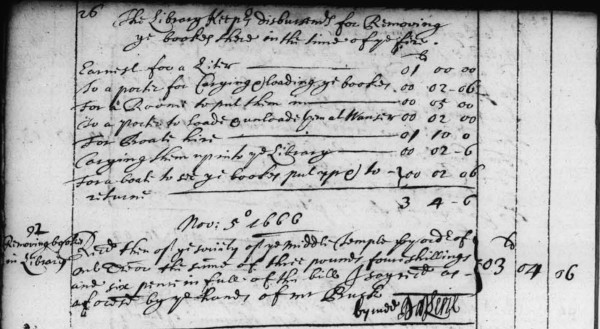 26
The Library Keeps disbursemts for Removing
ye bookes there in the time of ye fire.
Earnest for a Liter 01 00 00
To a porter for Carying & loading ye bookes 00 02 06
For a Roome to put them in 00 05 00
To a porter to Loade & unloade them at 00 02 00
For Boate hire 01 10 0
Carying them up into ye Library 00 02 - 6
For a boate to see ye bookes put to 00 02 06
returne
3 4 - 6
Nov: 5o 1666
92
Removing bookes
in Library
Recd then of ye society of ye Middle Temple by order of
the summe of three pounds four shillings
and six pence in full of this bill I say recd as
aforesd by ye hands of mr Buck 03 04 06
by mee